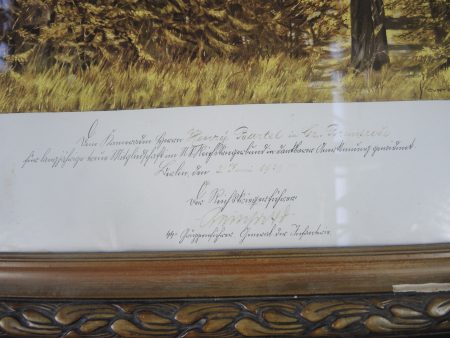 Dem Kameraden Herrn Henry Bartel in Gr.
für langjährige treue Mitgliedschaft im N.S. Reichskriegerbund in dankbarer Anerkennung gewidmet
Berlin, den 2. Juni 1939
Der Reichskriegerführer
SS-Gruppenführer General der Infanterie